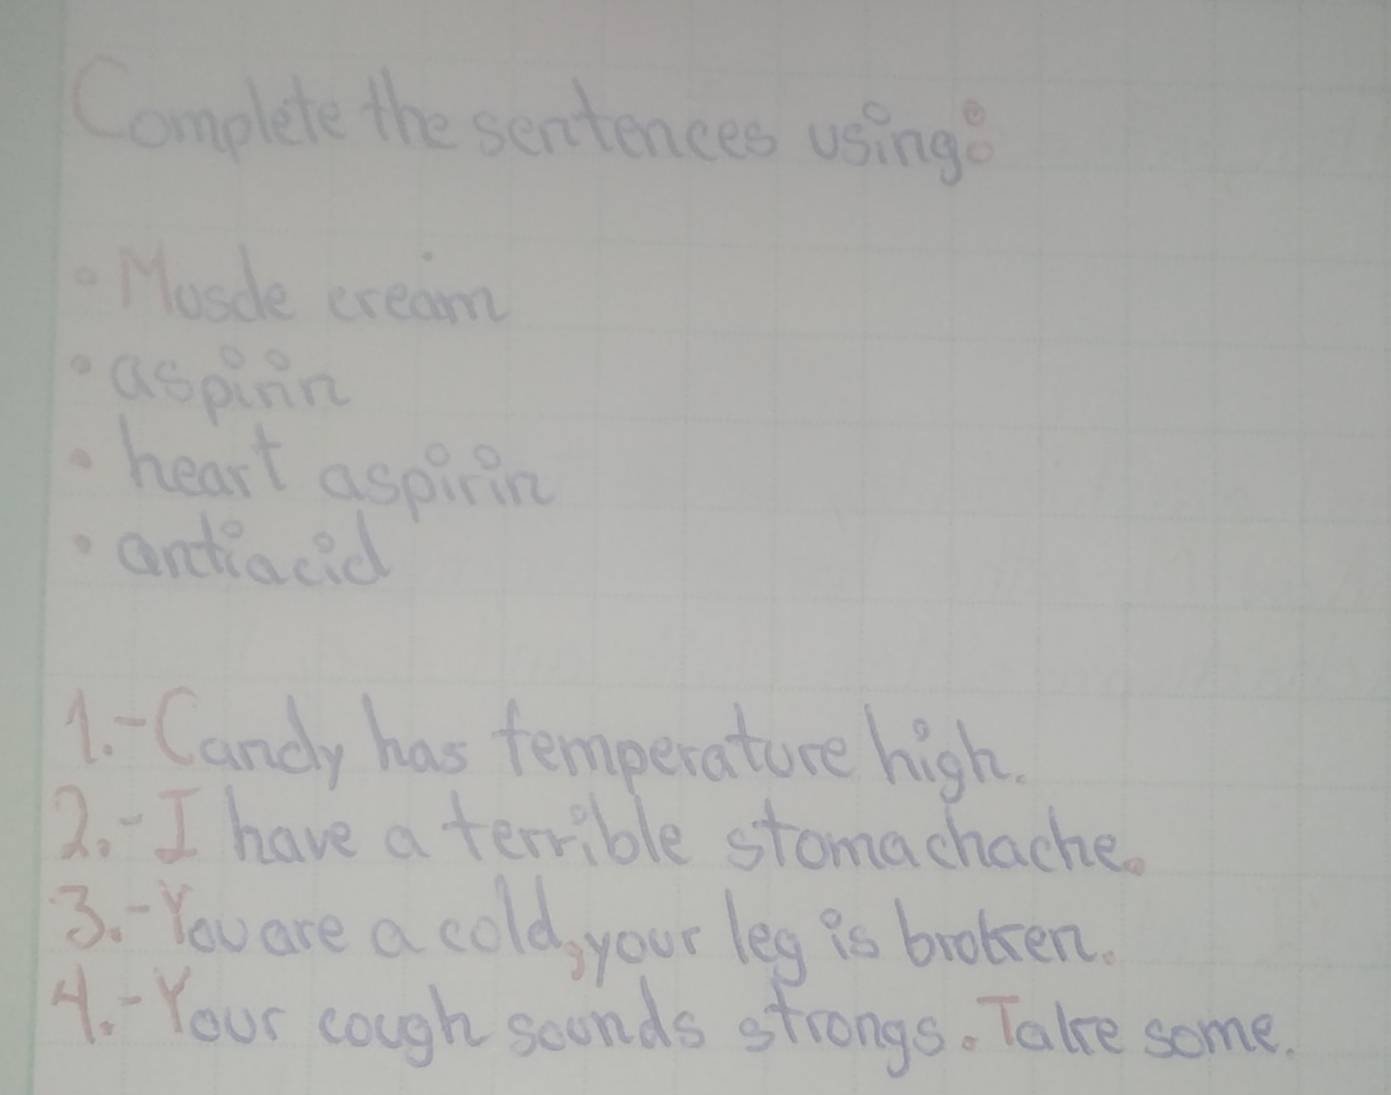 Complete the sentences using:
• Muscle cream
• aspirin
• heart aspirin
• antiacid
1.-Candy has temperature high.
2.-I have a terrible stomachache.
3.-You are a cold, your leg is broken.
4.-Your cough sounds strongs. Take some.